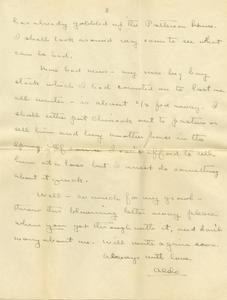 2
has already gobbled up the Patterson house.
I shall look around very soon to see what
can be had.
More bad news - my nice big hay
stack which I had counted on to last me
all winter - is about 2/3 fed away. I
shall either put Chinook out to pasture or
sell him and buy another horse in the
spring. Of course I can't afford to sell
him at a loss but I must do something
about it quick.
Well - so much for my growl -
throw this blooming letter away please
when you get through with it, and don't
worry about me. Will write again soon.
Always with love,